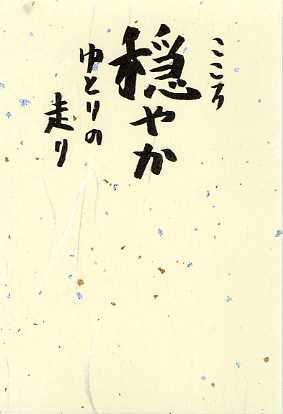 こころ
穏やか
ゆとりの
走り